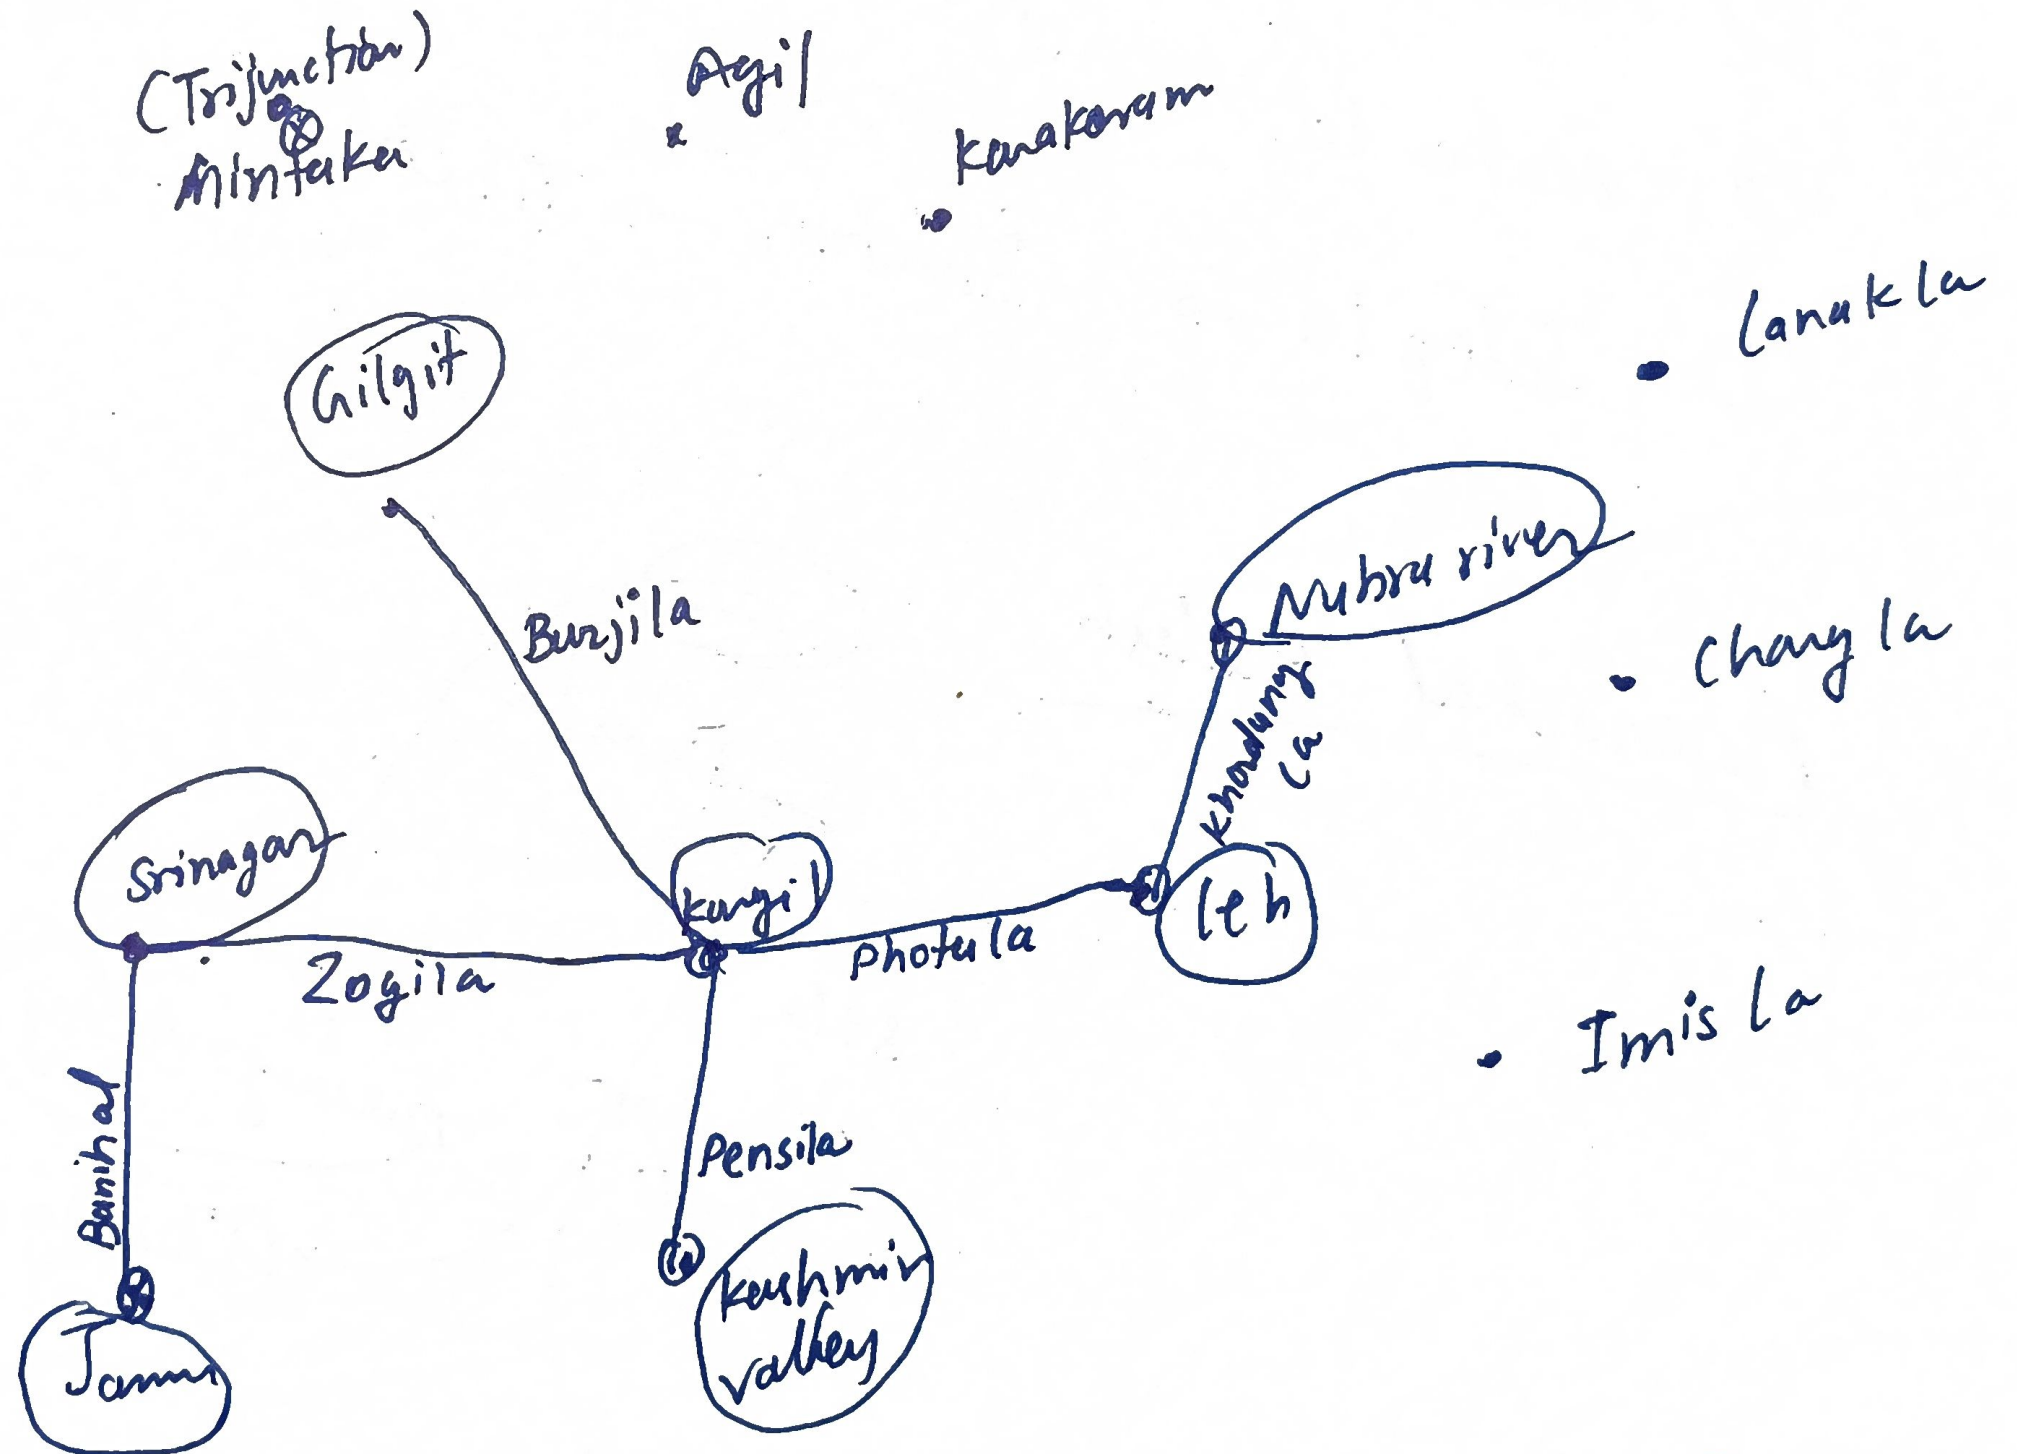 (Trijunction)
Mintaka
Agil
Karakoram
Lanak La
Gilgit
Burjila
Nubra river
Chang la
Khardung
La
Srinagar
Kargil
Leh
Zogila
Photula
Imis La
Banihal
Pensila
Kashmir
valley
Jammu